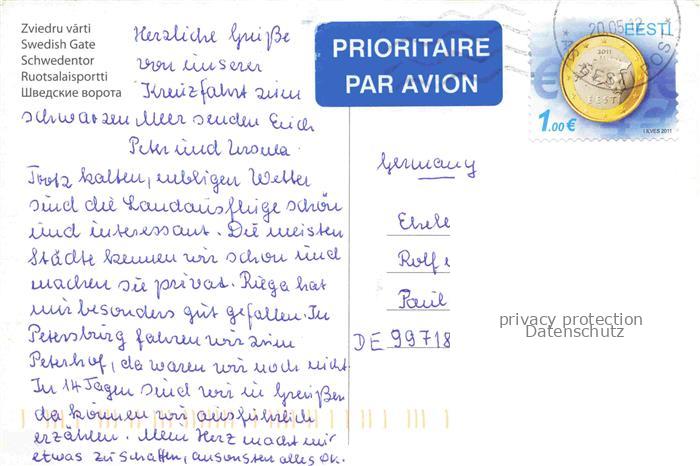 Zviedru vārti
Swedish Gate
Schwedentor
Ruotsalaisportti
Шведские ворота
Herzliche Grüße
von unserer
Kreuzfahrt zum
schwarzen Meer senden Euch
Peter und Ursula.
Trotz kalten, nebligen Wetter
sind die Landausflüge schön
und interessant. Die meisten
Städte kennen wir schon und
machen sie privat. Riega hat
mir besonders gut gefallen. In
Petersburg fahren wir zum
Peterhof, da waren wir noch nicht.
In 14 Tagen sind wir in Greußen
da können wir ausführlich
erzählen. Mein Herz macht mir
etwas zu schaffen, ansonsten alles Ok.
PRIORITAIRE
PAR AVION
20.05.12
EESTI
2011
EESTI
1.00 €
I.ILVES 2011
Germany
Rolf
Paul
DE 99718
privacy protection
Datenschutz